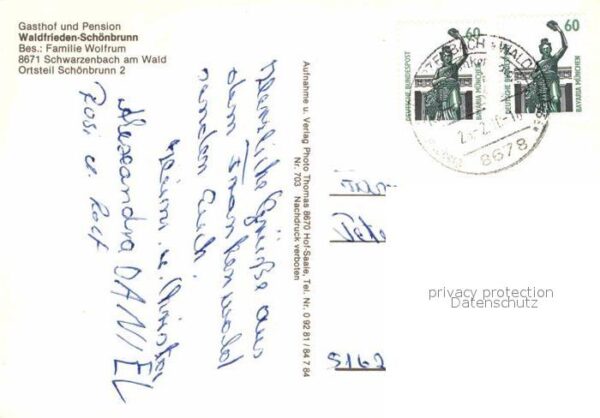 Gasthof und Pension
Waldfrieden-Schönbrunn
Bes.: Familie Wolfrum
8671 Schwarzenbach am Wald
Ortsteil Schönbrunn 2
Herzliche Grüße aus
dem Frankenwald
senden Euch
Heini u. Christa
Alexandra DANIEL
Rosi u. Rolf
Aufnahme u. Verlag Photo Thomas 8670 Hof-Saale, Tel. Nr. 0 92 81 / 8 47 84
Nr. 703 Nachdruck verboten
60
DEUTSCHE BUNDESPOST
BAVARIA MÜNCHEN
60
DEUTSCHE BUNDESPOST
BAVARIA MÜNCHEN
8678
5162
privacy protection
Datenschutz